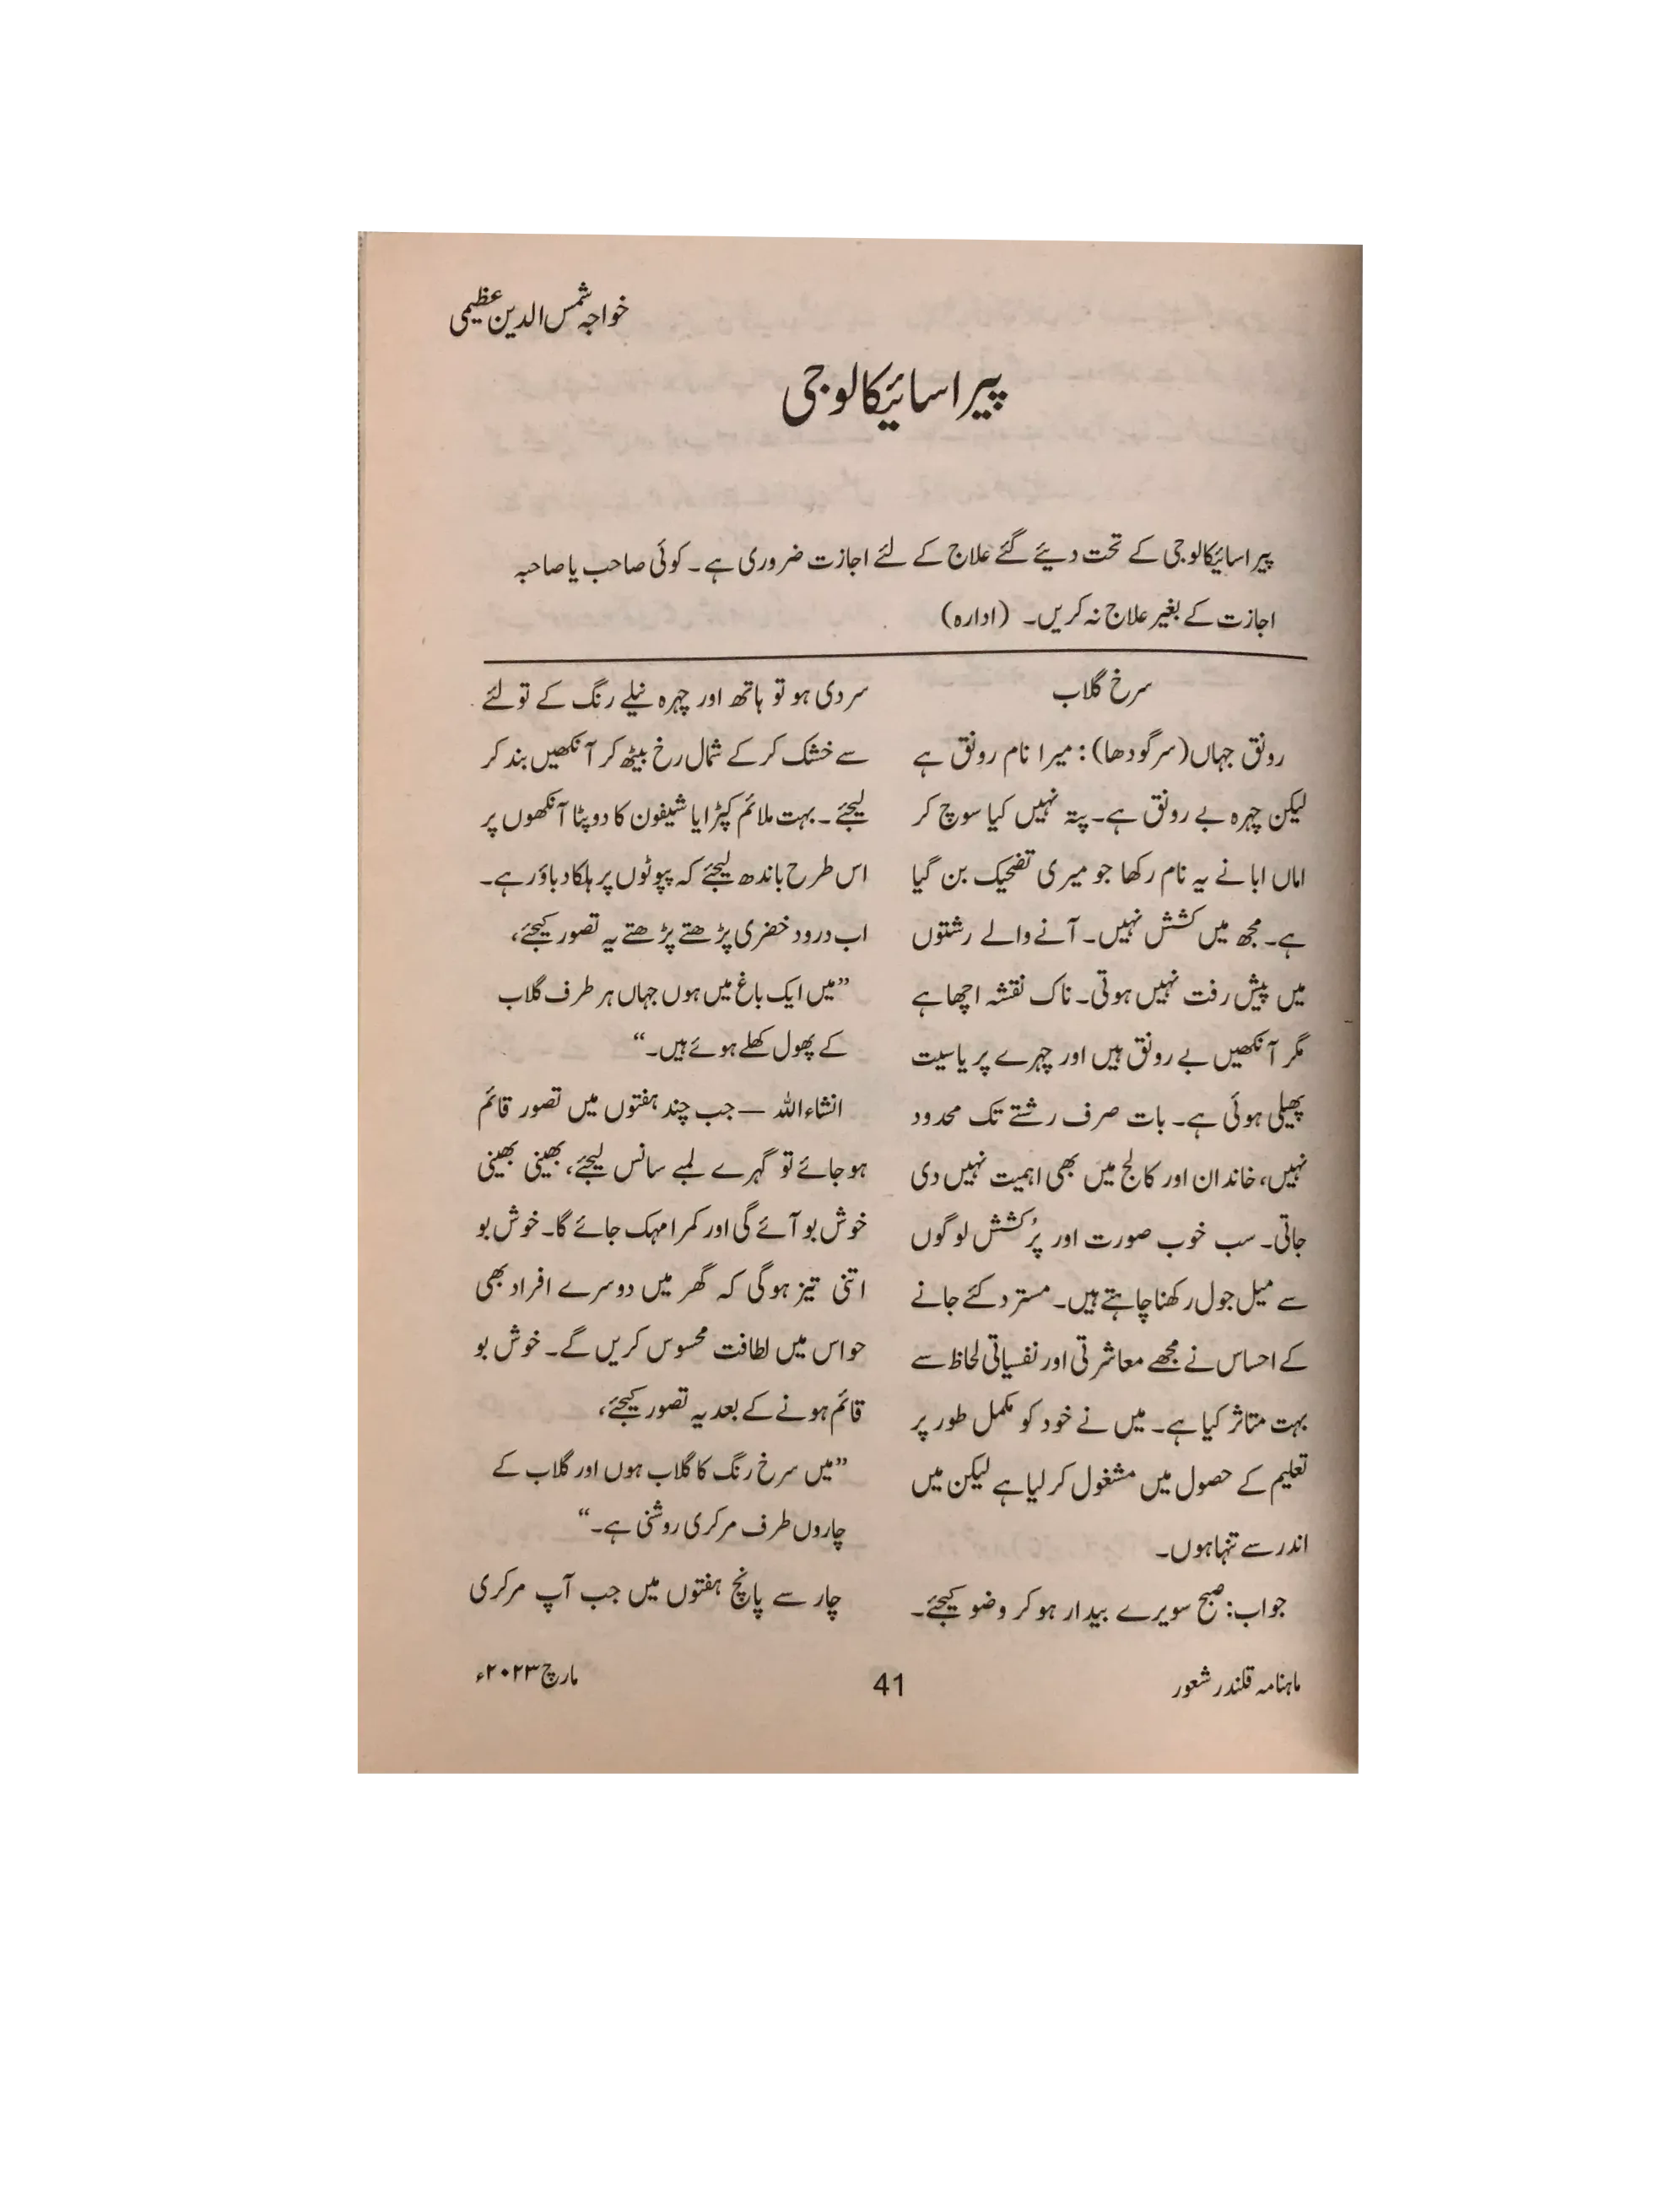 خواجہ شمس الدین عظیمی
پیراسائیکالوجی
پیراسائیکالوجی کے تحت دیئے گئے علاج کے لئے اجازت ضروری ہے۔ کوئی صاحب یا صاحبہ
اجازت کے بغیر علاج نہ کریں۔ (ادارہ)
سرخ گلاب
رونق جہاں (سرگودھا): میرا نام رونق ہے
لیکن چہرہ بے رونق ہے۔ پتہ نہیں کیا سوچ کر
اماں ابا نے یہ نام رکھا جو میری تضحیک بن گیا
ہے۔ مجھ میں کشش نہیں۔ آنے والے رشتوں
میں پیش رفت نہیں ہوتی۔ ناک نقشہ اچھا ہے
مگر آنکھیں بے رونق ہیں اور چہرے پر یاسیت
پھیلی ہوئی ہے۔ بات صرف رشتے تک محدود
نہیں، خاندان اور کالج میں بھی اہمیت نہیں دی
جاتی۔ سب خوب صورت اور پُرکشش لوگوں
سے میل جول رکھنا چاہتے ہیں۔ مسترد کئے جانے
کے احساس نے مجھے معاشرتی اور نفسیاتی لحاظ سے
بہت متاثر کیا ہے۔ میں نے خود کو مکمل طور پر
تعلیم کے حصول میں مشغول کر لیا ہے لیکن میں
اندر سے تنہا ہوں۔
جواب: صبح سویرے بیدار ہو کر وضو کیجئے۔
سردی ہو تو ہاتھ اور چہرہ نیلے رنگ کے تولئے
سے خشک کر کے شمال رخ بیٹھ کر آنکھیں بند کر
لیجئے۔ بہت ملائم کپڑا یا شیفون کا دوپٹا آنکھوں پر
اس طرح باندھ لیجئے کہ پپوٹوں پر ہلکا دباؤ رہے۔
اب درود خضری پڑھتے پڑھتے یہ تصور کیجئے،
”میں ایک باغ میں ہوں جہاں ہر طرف گلاب
کے پھول کھلے ہوئے ہیں۔“
انشاء اللہ — جب چند ہفتوں میں تصور قائم
ہو جائے تو گہرے لمبے سانس لیجئے، بھینی بھینی
خوش بو آئے گی اور کمرا مہک جائے گا۔ خوش بو
اتنی تیز ہوگی کہ گھر میں دوسرے افراد بھی
حواس میں لطافت محسوس کریں گے۔ خوش بو
قائم ہونے کے بعد یہ تصور کیجئے،
”میں سرخ رنگ کا گلاب ہوں اور گلاب کے
چاروں طرف مرکری روشنی ہے۔“
چار سے پانچ ہفتوں میں جب آپ مرکری
ماہنامہ قلندر شعور
41
مارچ ۲۰۲۳ء